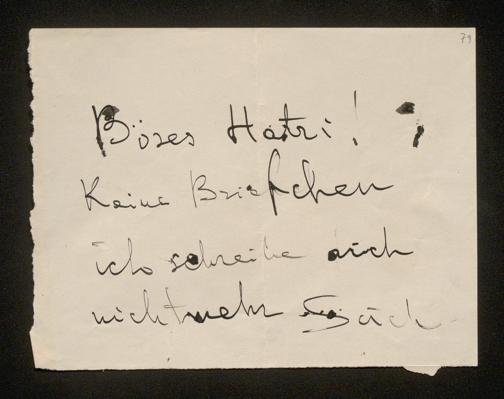 79
Böses Hatzi!
Keine Briefchen
ich schreibe auch
nicht mehr